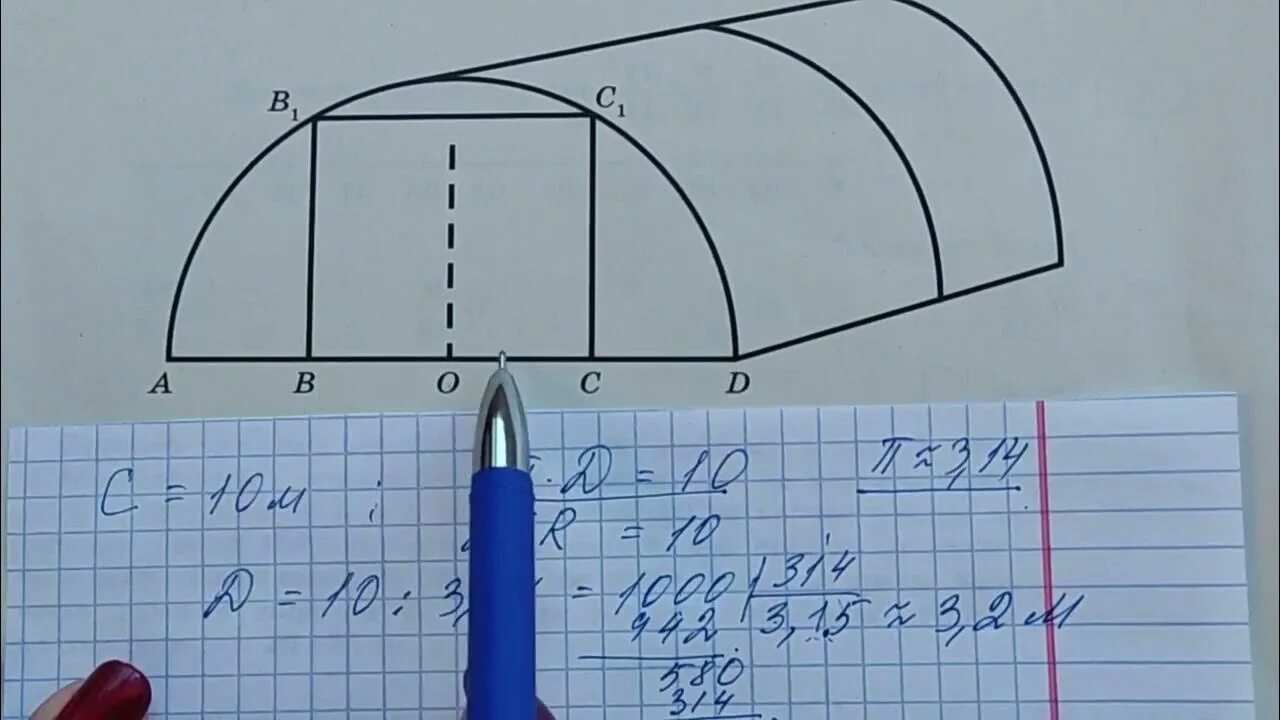 B₁ C₁
A B O C D
C = 10 м ; · D = 10 π ≈ 3,14
R = 10
D = 10 : 3, = 1000 | 314
942 3,15 ≈ 3,2 м
580
314